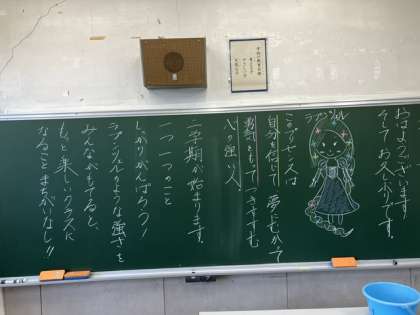 おはようございます
そして お久しぶりです。
ラプンツェル
このプリンセスは
自分を信じて 夢にむかって
勇気をもって つきすすむ
心の強い人
二学期が始まります。
一つ一つのこと
しっかりがんばろう!
ラプンツェルのような強さを
みんながもてると、
もっと楽しいクラスに
なることまちがいなし!!